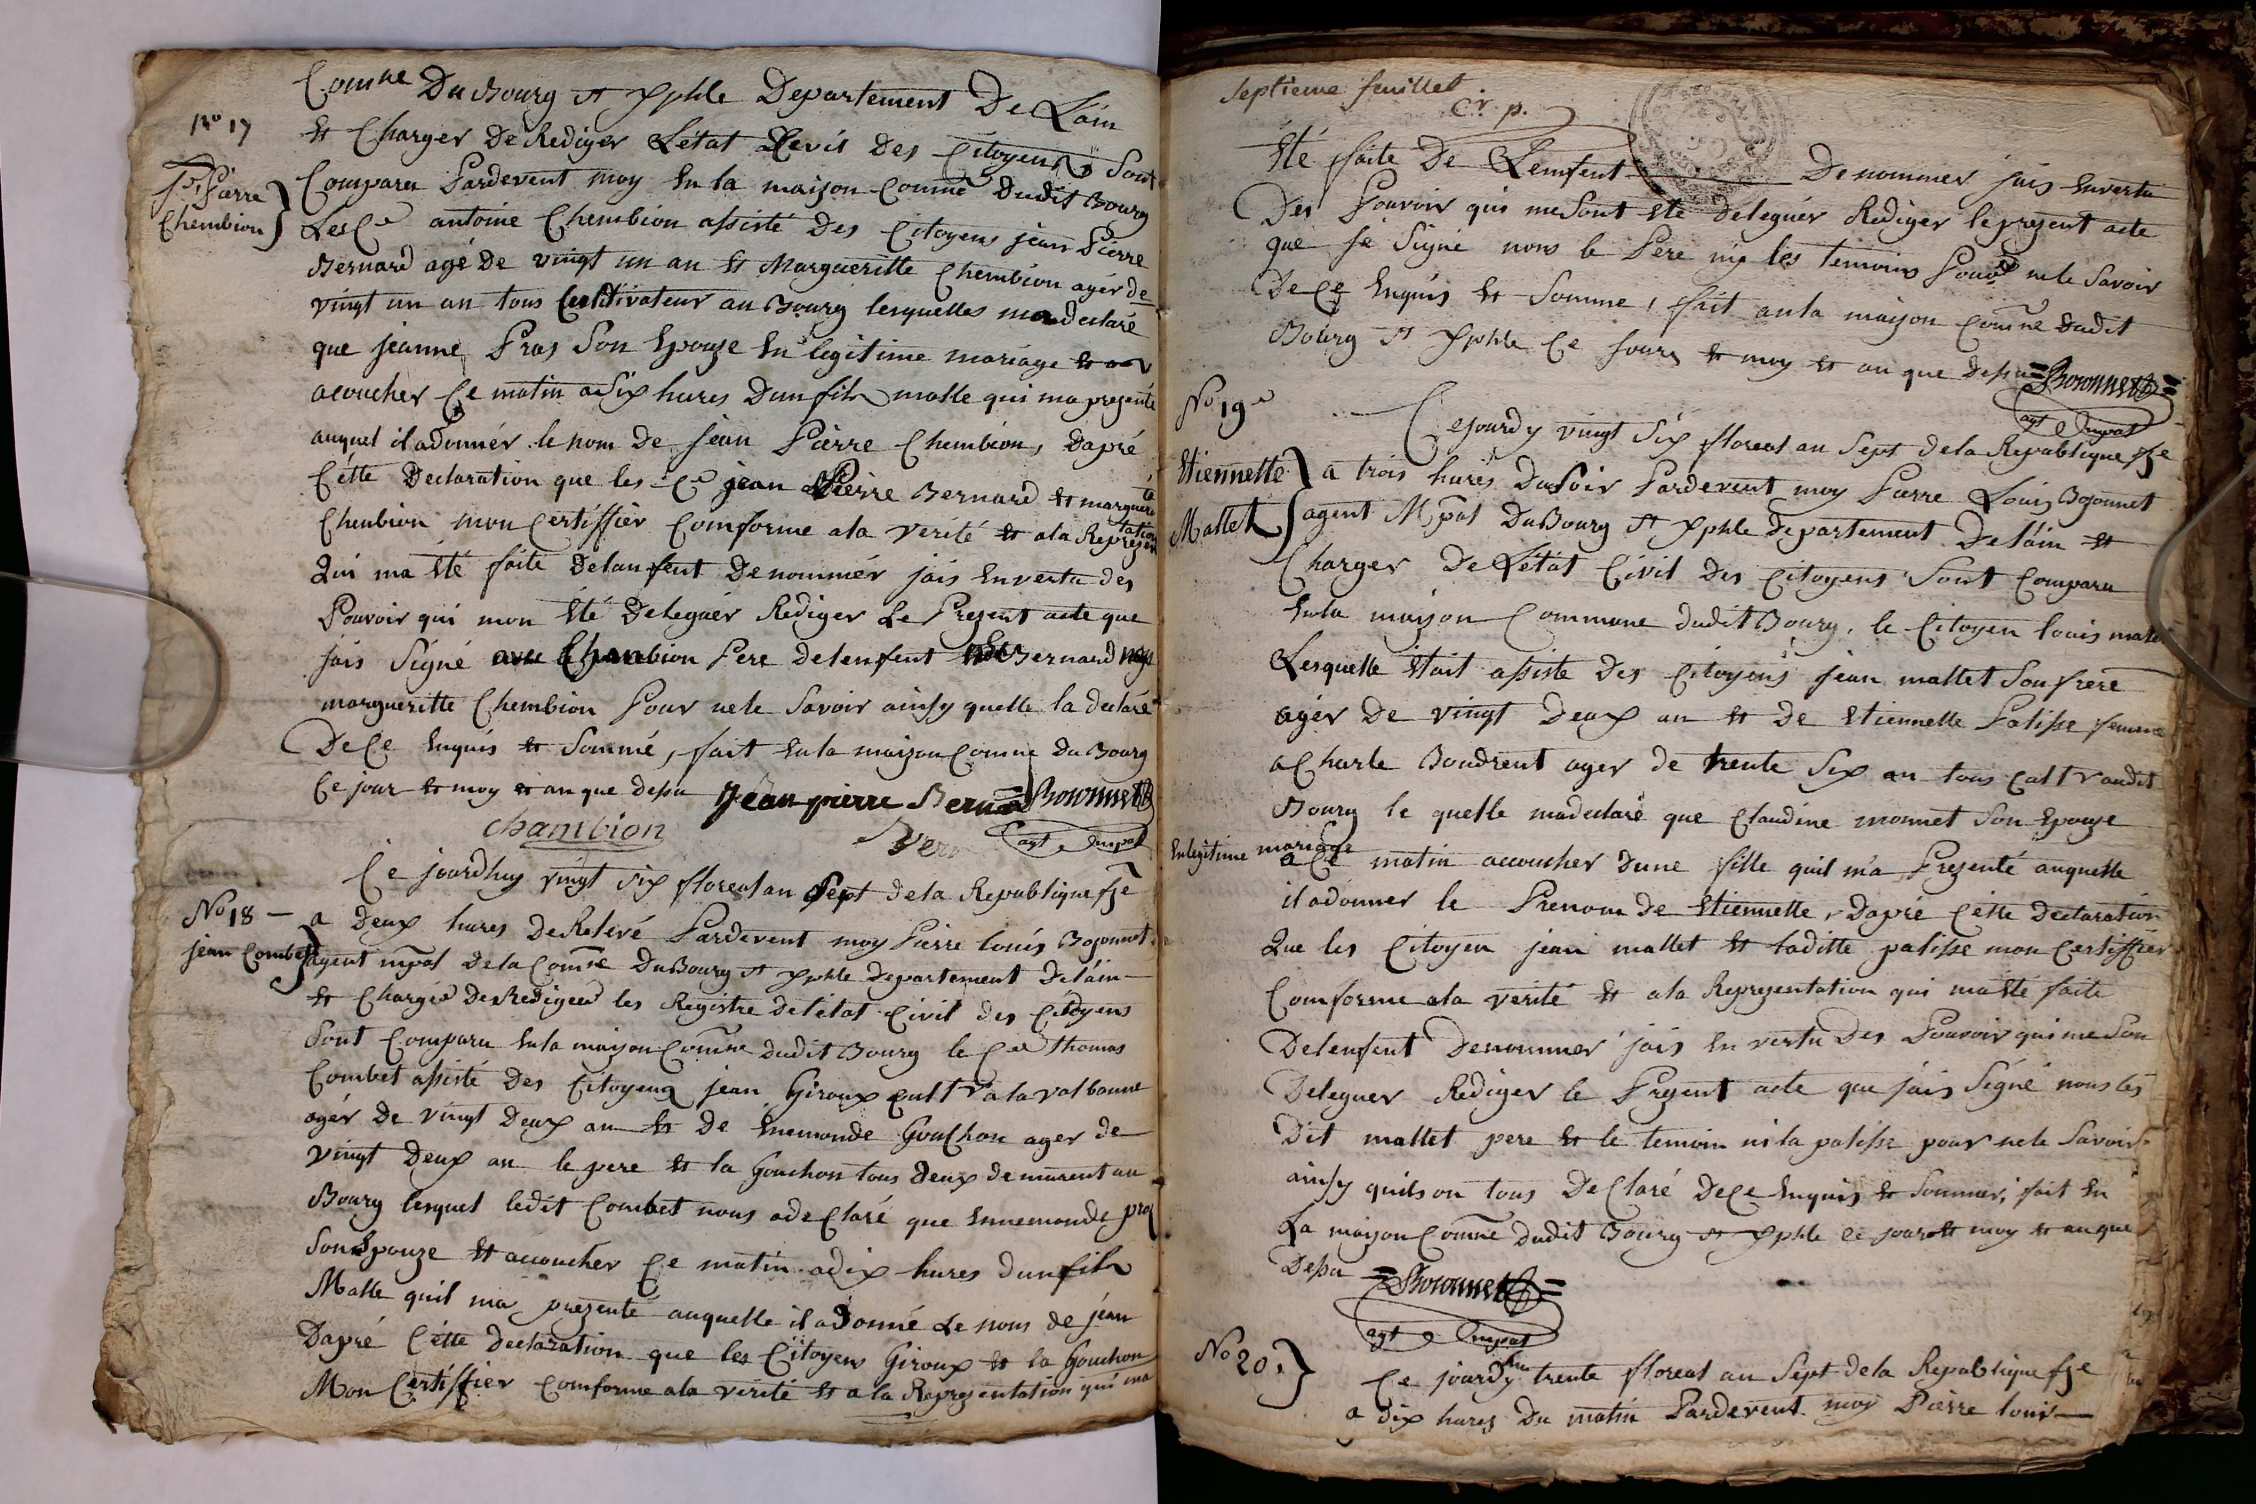 Comne Du Bourg st xphle Departement De Lain
No 17
et Charger De Rediger L'état Cevis Des Citoyens Sont
jn Pierre
Chembion
Comparu Pardevent moy en la maison Comne dudit Bourg
Les Cn antoine Chembion assisté Des Citoyens jean Pierre
Bernard agé De vingt un an et Margueritte Chembion agér de
vingt un an tous Cultivateur au Bourg lesquelles ma declaré
que jeanne Pras Son Epouze En legitime mariage et
acoucher Ce matin a Six hures Dun fils malle qui ma prezenté
auquel il a donnér le nom De jean Pierre Chembion, Dapré
Cétte Declaration que les Cn jean Pierre Bernard et marguerite
Chenbion mon Certiffiér Comforme a la verité et a la Reprezentation
Qui ma été faite delanfent Denommér jais en vertu des
Pouvoir qui mon été Deleguér Rediger Le Prezent acte que
jais Signé avec Chanbion Pere delenfent Bernard
margueritte Chembion Pour ne le Savoir ainsy quelle la declaré
De Ce enquis et Sommé, fait en la maizon Comne Du Bourg
Ce jour et moy et an que desu Jean pierre Berna Bozonnet
chambion
agt mpal
Ce jourdhuy vingt six floreal an Sept de la Republique fçe
No 18 — a Deux hures De Relevé Pardevent moy Pierre louis Bozonnet
jean Combet
agent mpal De la Comne Du Bourg st xphle Departement De lain
et Chargé De Redigér les Registre de l'état Civil des Citoyens
Sont Comparu en la maizon Comne dudit Bourg le Cen thomas
Combet assisté Des Citoyens jean Giroux cultr a la valbonne
agér De vingt Deux an et De enemonde Gouchon ager de
vingt Deux an le pere et la Gouchon tous deux demurent au
Bourg lesquel ledit Combet nous a declaré que Ennemonde
Son Epouze et accoucher Ce matin a dix hures dun fils
Malle quil ma prezenté auquelle il a donné Le nom de jean
Dapré Cétte declaration que les Citoyens Giroux et la Gouchon
Mon Certiffier Comforme a la verité et a la Reprezentation qui ma
Septieme feuillet
été faite De Lemfent Denommer jais en vertu
Des Pouvoir qui me Sont été deleguér Rediger le prezent acte
que je Signé nons le Pere ny les temoins Pour ne le Savoir
De Ce Enquis et Somme, fait an la maizon Comne dudit
Bourg st xphle Ce jours et moy et an que desu = Bozonnet =
agt mpal
No 19e
Ce jourdy vingt Six floreal an Sept de la Republique fçe
Etiennette
Mallet
a trois hures Du Soir Pardevent moy Pierre Louis Bozonnet
agent Mpal Du Bourg st xphle departement De lain et
Charger De L'état Civil Des Citoyens Sont Comparu
en la maizon Commune dudit Bourg, le Citoyen louis malet
Lesquelle était assiste Des Citoyens jean mallet Son frere
agér De vingt Deux an et De etiennette Palisse femme
a Charle Boudrent ager de trente Six an tous cultr audit
Bourg le quelle ma declaré que Claudine monnet Son Epouze
En legitime mariage
a Ce matin accoucher dune fille quil m'a Prezenté auquelle
il a donner le Prenom De Etiennette, Dapré Cétte Declaration
Que les Citoyen jean mallet et laditte palisse mon Certiffiér
Comforme a la verité et a la Reprezentation qui ma été faite
Delenfent Denommér jais En vertu Des Pouvoir qui me Son
Deleguer Rediger le Prezent acte que jais Signé nous les
Dit mallet pere et le temoin ni la palisse pour ne le Savoir
ainsy quils on tous Declaré De Ce Enquis et Sommer, fait En
La maizon Comne dudit Bourg st xphle Ce jour et moy et an que
Desu = Bozonnet =
agt mpal
No 20.
Ce jourdhuy trente floreal an Sept de la Republique fçe
a dix hures Du matin Pardevent moy Pierre louis